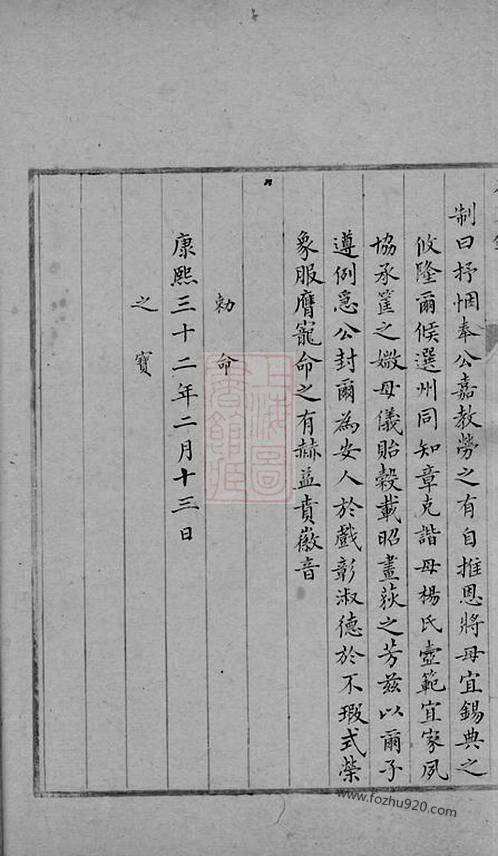 制曰抒悃奉公嘉教勞之有自推恩將母宜錫典之
攸隆爾候選州同知章克諧母楊氏壼範宜家夙
協承筐之媺母儀貽穀載昭畫荻之芳茲以爾子
遵例急公封爾為安人於戲彰淑德於不瑕式榮
象服膺寵命之有赫益賁徽音
勅命
康熙三十二年二月十三日
之寶
上海圖書館藏
www.fozhu920.com